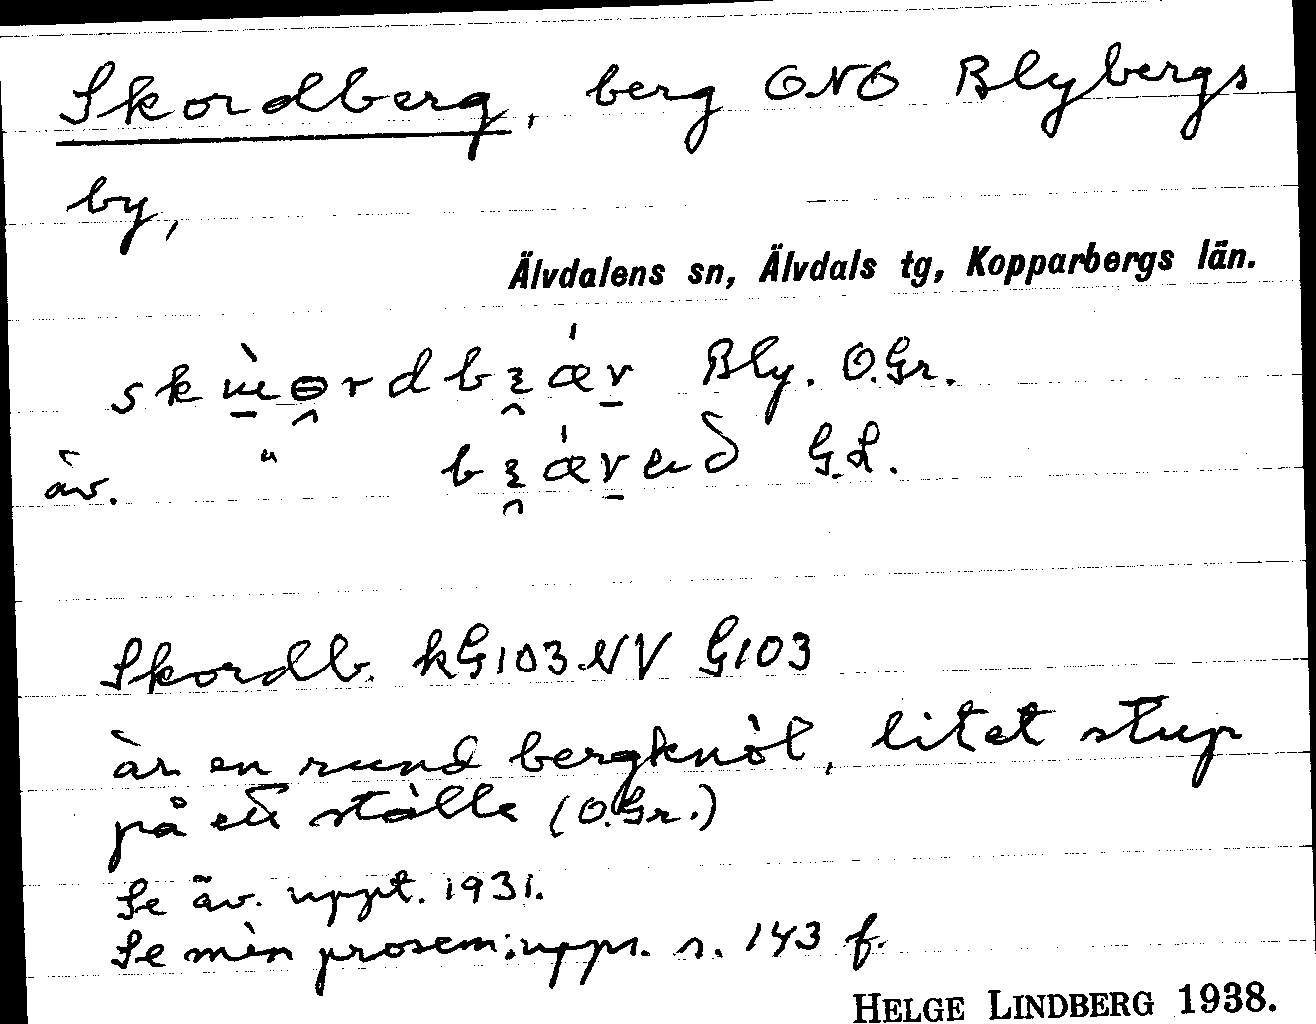 Skordberg, berg ONO Blybergs
by,
Älvdalens sn, Älvdals tg, Kopparbergs län.
Bly. O.Gr.
äv. " G.L.
Skordb. kG103NV G103
är en rund bergknöl, litet stup
på ett ställe (O.Gr.)
Se äv. uppt. 1931.
Se min prosem.upps. s. 143 f.
HELGE LINDBERG 1938.